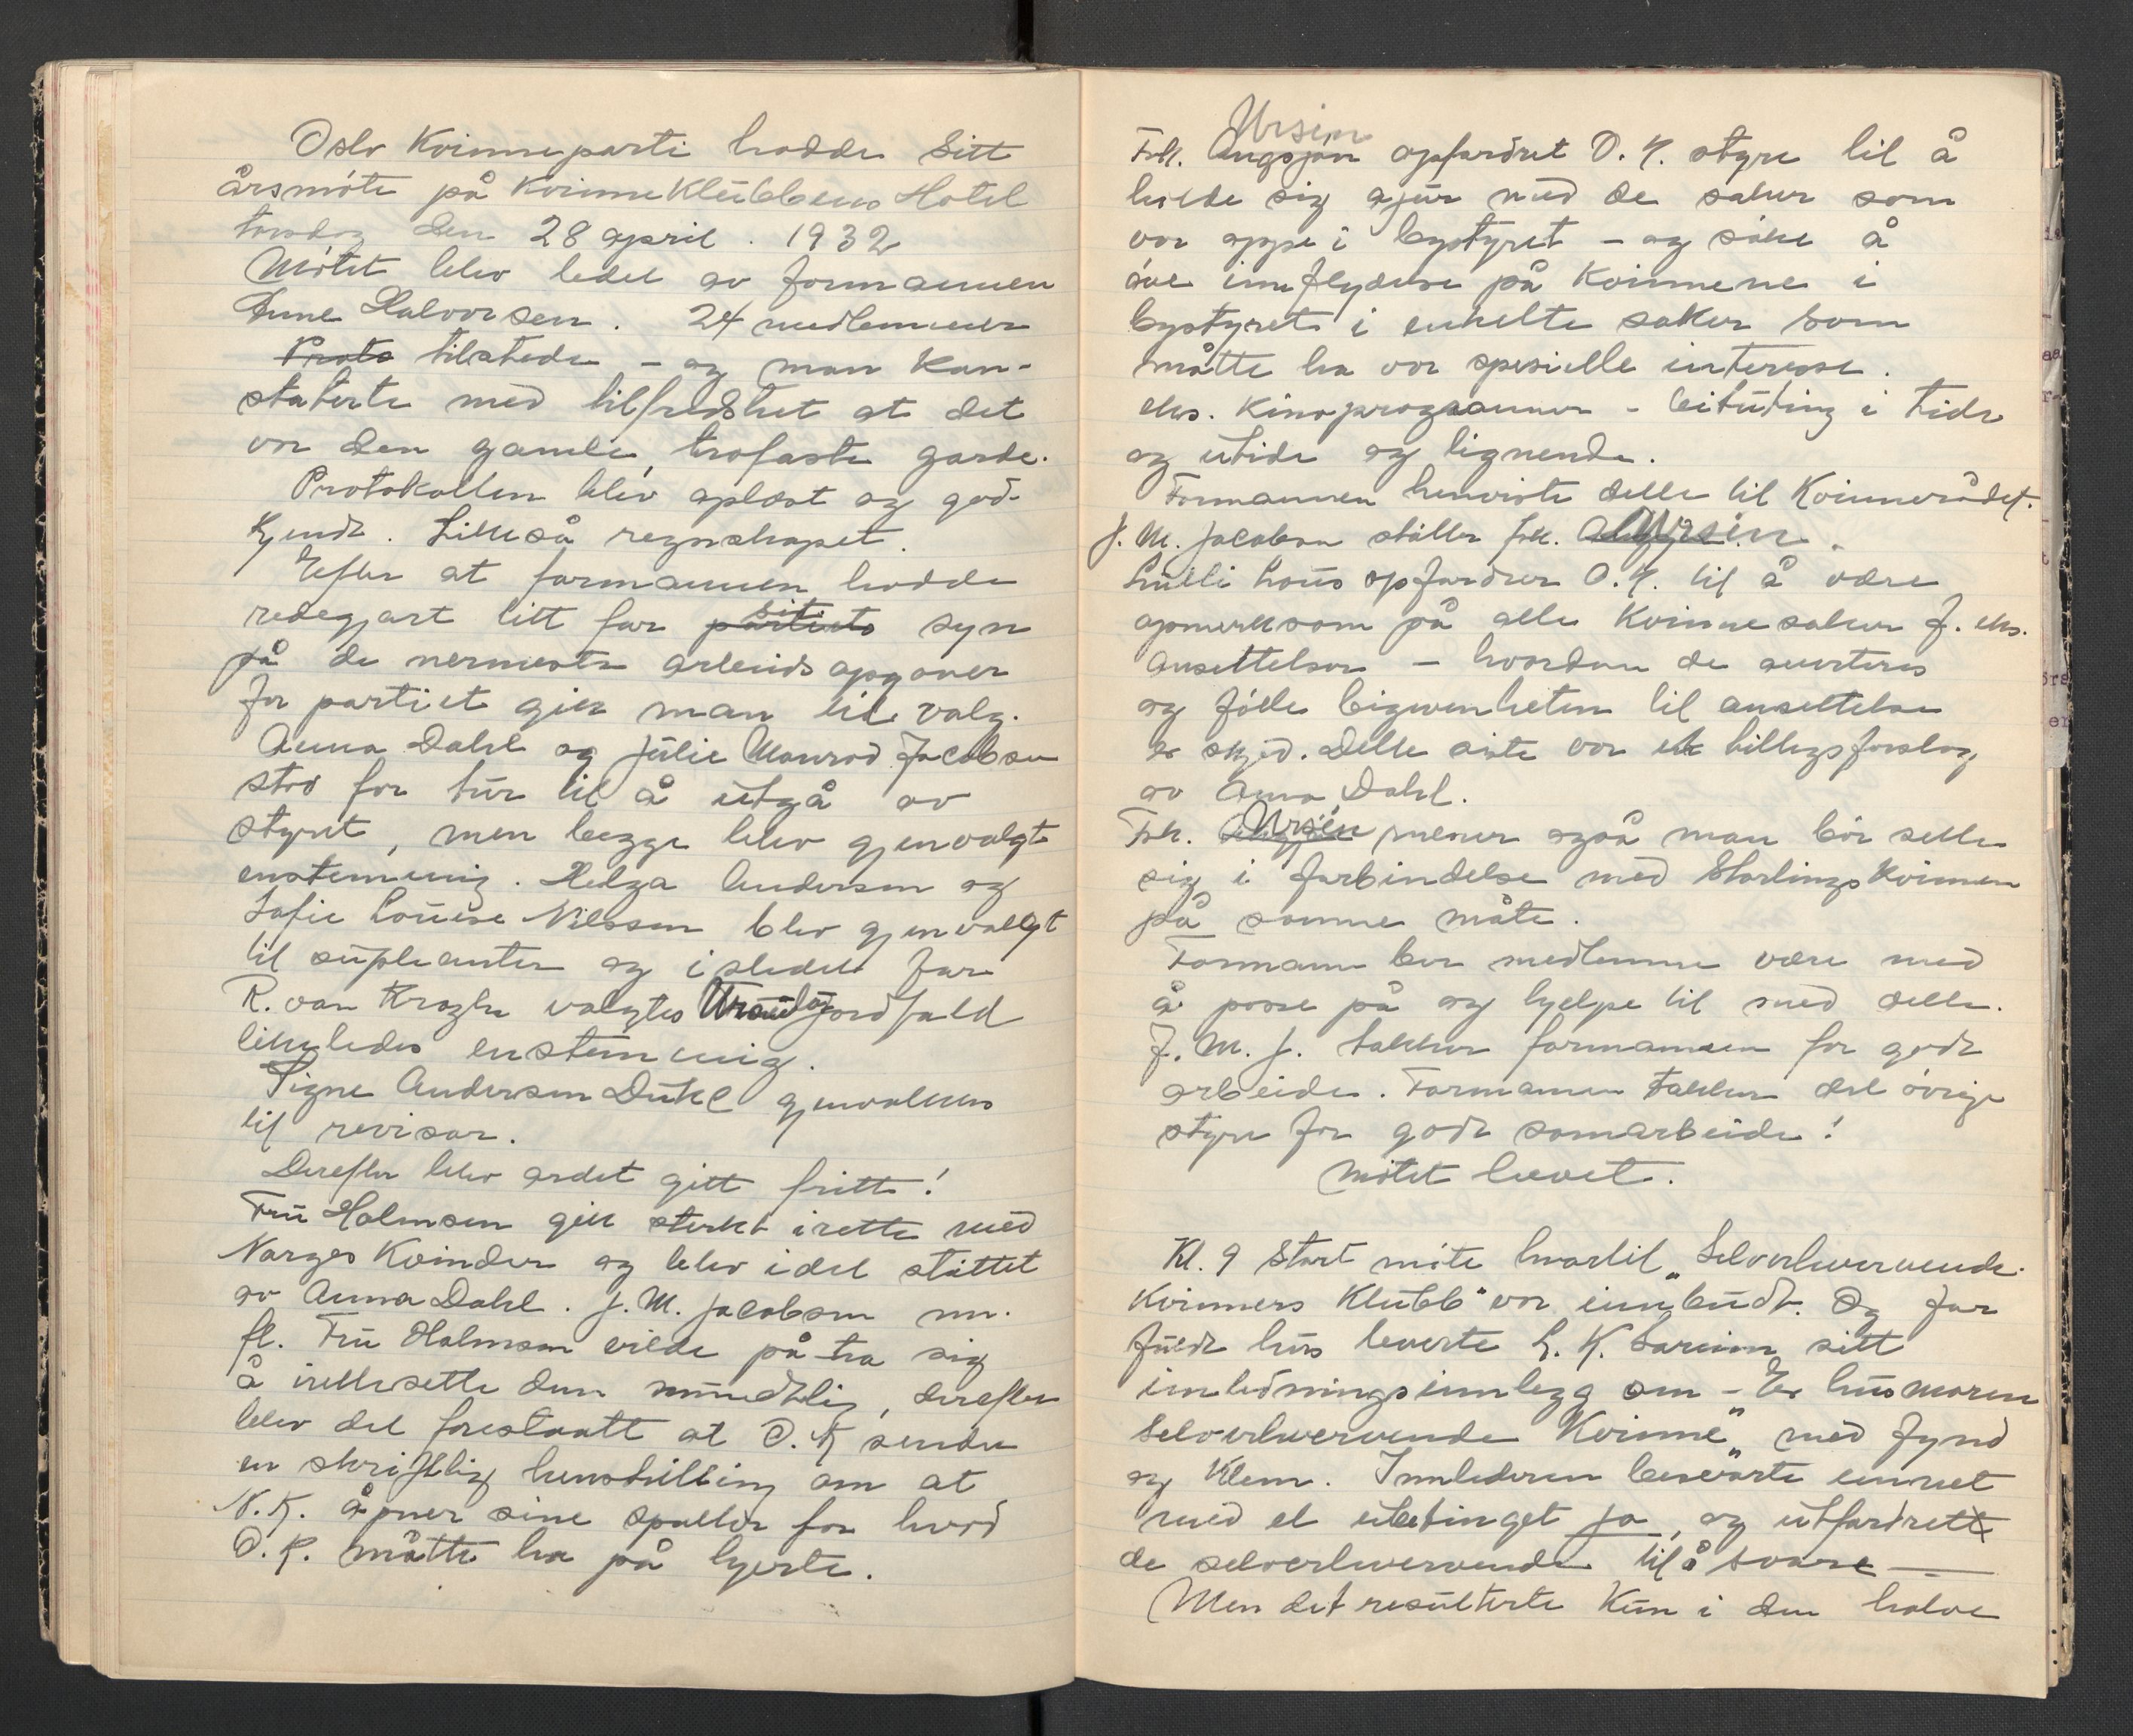 Oslo Kvinneparti hadde sitt
årsmöte på Kvinneklubbens Hotel
torsdag den 28 april. 1932
Mötet blev ledet av formannen
Anne Halvorsen. 24 medlemmer
Proto tilstede – og man kon-
staterte med tilfredshet at det
var den gamle, trofaste garde.
Protokollen blev oplest og god-
kjendt. Likeså regnskapet.
Efter at formannen hadde
redegjort litt for partiets sitt syn
på de nermeste arbeidsopgaver
for partiet gikk man til valg.
Anna Dahl og Julie Monrad Jacobsen
stod for tur til å utgå av
styret, men begge blev gjenvalgt
enstemmig. Helga Andersen og
Sofie Louise Nilsson blev gjenvalgt
til supleanter og istedet for
R. von Krogh valgtes Jordfald
likeledes enstemmig.
Signe Andersen Duhl gjenvalgtes
til revisor.
Derefter blev ordet gitt fritt!
Fru Holmsen gikk sterkt irette med
Norges Kvinder og blev i det støttet
av Anna Dahl. J. M. Jacobsen m.
fl. Fru Holmsen vilde påta sig
å irettesette dem mundtlig, derefter
blev det foreslaatt at O. K sender
en skriftlig henstilling om at
N. K. åpner sine spalter for hvad
O. K. måtte ha på hjerte.
Ursin
Frk. opfordret O. K. styre til å
holde sig ajur med de saker som
var oppe i bystyret – og söke å
öve innflydelse på kvinnene i
bystyret i enkelte saker som
måtte ha vor spesielle interesse.
eks. Kinoprogrammer – leituting i tide
og utide og lignende.
Formannen henviste dette til Kvinnerådet.
J. M. Jacobsen støtter frk. Ursin.
Lulli Lous opfordrer O. K. til å være
opmerksom på alle kvinnesaker f. eks.
ansettelser – hvordan de averteres
og følle bigivenheten til ansettelse
er skjed. Dette siste var et tillegsforslag
av Anna Dahl.
Frk. Ursin mener også man bör sette
sig i forbindelse med Stortingskvinnen
på samme måte.
Formann ber medlemme være med
å passe på og hjelpe til med dette.
J. M. J. takker formannen for godt
arbeide. Formannen takker det övrige
styre for godt samarbeide!
Mötet hevet.
Kl. 9 stort möte hvortil „Selverhvervende
Kvinners Klubb" var innbudt. Og for
fuldt hus leverte L. K. Lareim sitt
innledningsinnlegg om – Er husmoren
selverhvervende Kvinne" med fynd
og klem. Innlederen besvarte emnet
med et ubetinget ja, og utfordrett
de selverhvervende til å svare —
Men det resulterte kun i den halve